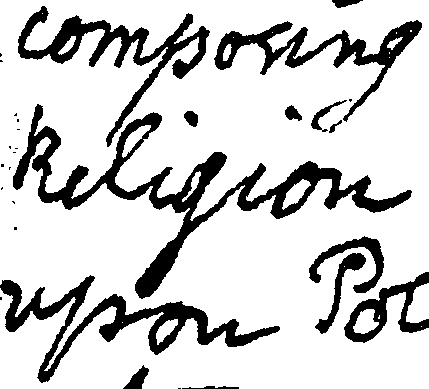 composing
Religion
upon Poe